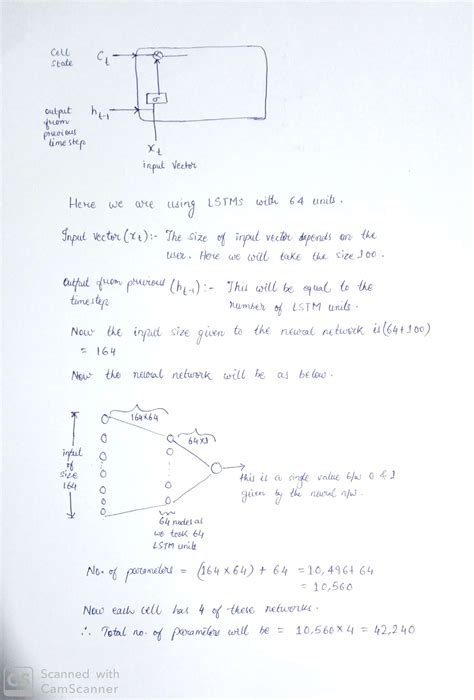 Cell
state
Ct
σ
output
from
previous
time step
ht-1
xt
input Vector
Here we are using LSTMs with 64 units.
Input Vector (xt) :- The size of input vector depends on the
user. Here we will take the size 100.
Output from previous (ht-1) :- This will be equal to the
timestep
number of LSTM units.
Now the input size given to the neural network is (64+100)
= 164
Now the neural network will be as below.
164x64
64x1
input
of
size
164
this is a single value b/w 0 & 1
given by the neural n/w.
64 nodes as
we took 64
LSTM units
No. of parameters = (164 x 64) + 64 = 10,496+ 64
= 10,560
Now each cell has 4 of these networks.
∴ Total no. of parameters will be = 10,560 x 4 = 42,240
CS Scanned with
CamScanner